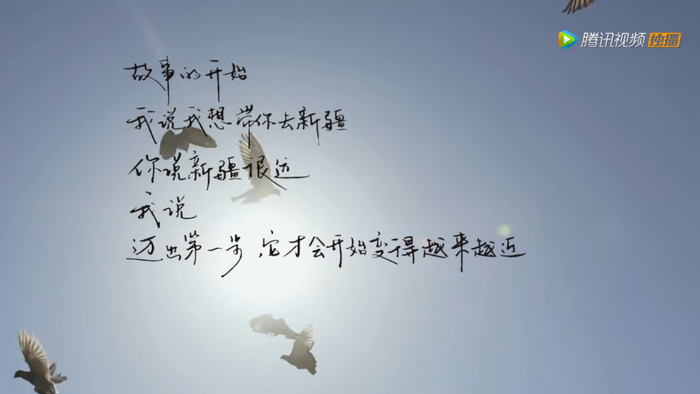 腾讯视频 独播
故事的开始
我说我想带你去新疆
你说新疆很远
我说
迈出第一步,它才会开始变得越来越近